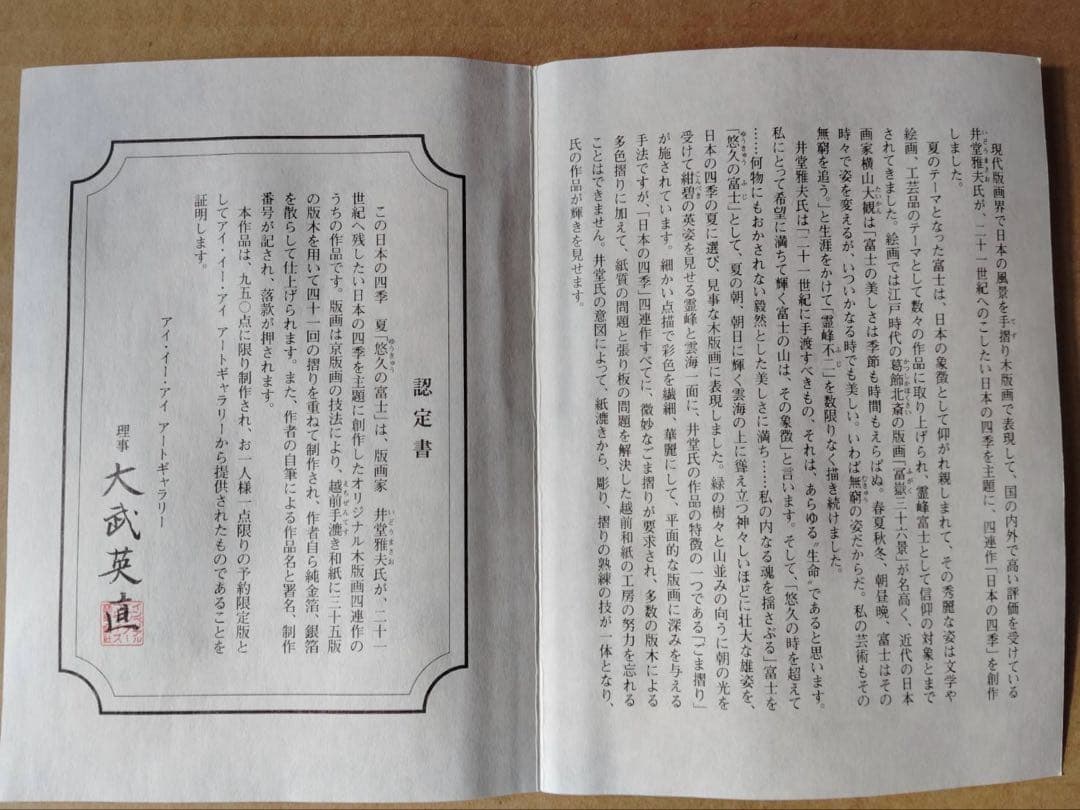 現代版画界で日本の風景を手摺り木版画で表現して、国の内外で高い評価を受けている
井堂雅夫氏が、二十一世紀へのこしたい日本の四季を主題に、四連作「日本の四季」を創作
しました。
夏のテーマとなった富士は、日本の象徴として仰がれ親しまれて、その秀麗な姿は文学や
絵画、工芸品のテーマとして数々の作品に取り上げられ、霊峰富士として信仰の対象とまで
されてきました。絵画では江戸時代の葛飾北斎の版画「冨嶽三十六景」が名高く、近代の日本
画家横山大観は「富士の美しさは季節も時間もえらばぬ。春夏秋冬、朝昼晩、富士はその
時々で姿を変えるが、いついかなる時でも美しい。いわば無窮の姿だからだ。私の芸術もその
無窮を追う。」と生涯をかけて「霊峰不二」を数限りなく描き続けました。
井堂雅夫氏は「二十一世紀に手渡すべきもの、それは、あらゆる〝生命〟であると思います。
私にとって希望に満ちて輝く富士の山は、その象徴」と言います。そして、「悠久の時を超えて
……何物にもおかされない毅然とした美しさに満ち……私の内なる魂を揺さぶる」富士を
「悠久の富士」として、夏の朝、朝日に輝く雲海の上に聳え立つ神々しいほどに壮大な雄姿を、
日本の四季の夏に選び、見事な木版画に表現しました。緑の樹々と山並みの向うに朝の光を
受けて紺碧の英姿を見せる霊峰と雲海一面に、井堂氏の作品の特徴の一つである「ごま摺り」
が施されています。細かい点描で彩色を繊細、華麗にして、平面的な版画に深みを与える
手法ですが、「日本の四季」四連作すべてに、微妙なごま摺りが要求され、多数の版木による
多色摺りに加えて、紙質の問題と張り板の問題を解決した越前和紙の工房の努力を忘れる
ことはできません。井堂氏の意図によって、紙漉きから、彫り、摺りの熟練の技が一体となり、
氏の作品が輝きを見せます。
認定書
この日本の四季　夏「悠久の富士」は、版画家　井堂雅夫氏が、二十一
世紀へ残したい日本の四季を主題に創作したオリジナル木版画四連作の
うちの作品です。版画は京版画の技法により、越前手漉き和紙に三十五版
の版木を用いて四十一回の摺りを重ねて制作され、作者自ら純金箔、銀箔
を散らして仕上げられます。また、作者の自筆による作品名と署名、制作
番号が記され、落款が押されます。
本作品は、九五〇点に限り制作され、お一人様一点限りの予約限定版と
してアイ・イー・アイ　アートギャラリーから提供されたものであることを
証明します。
アイ・イー・アイ　アートギャラリー
理事　大武英直